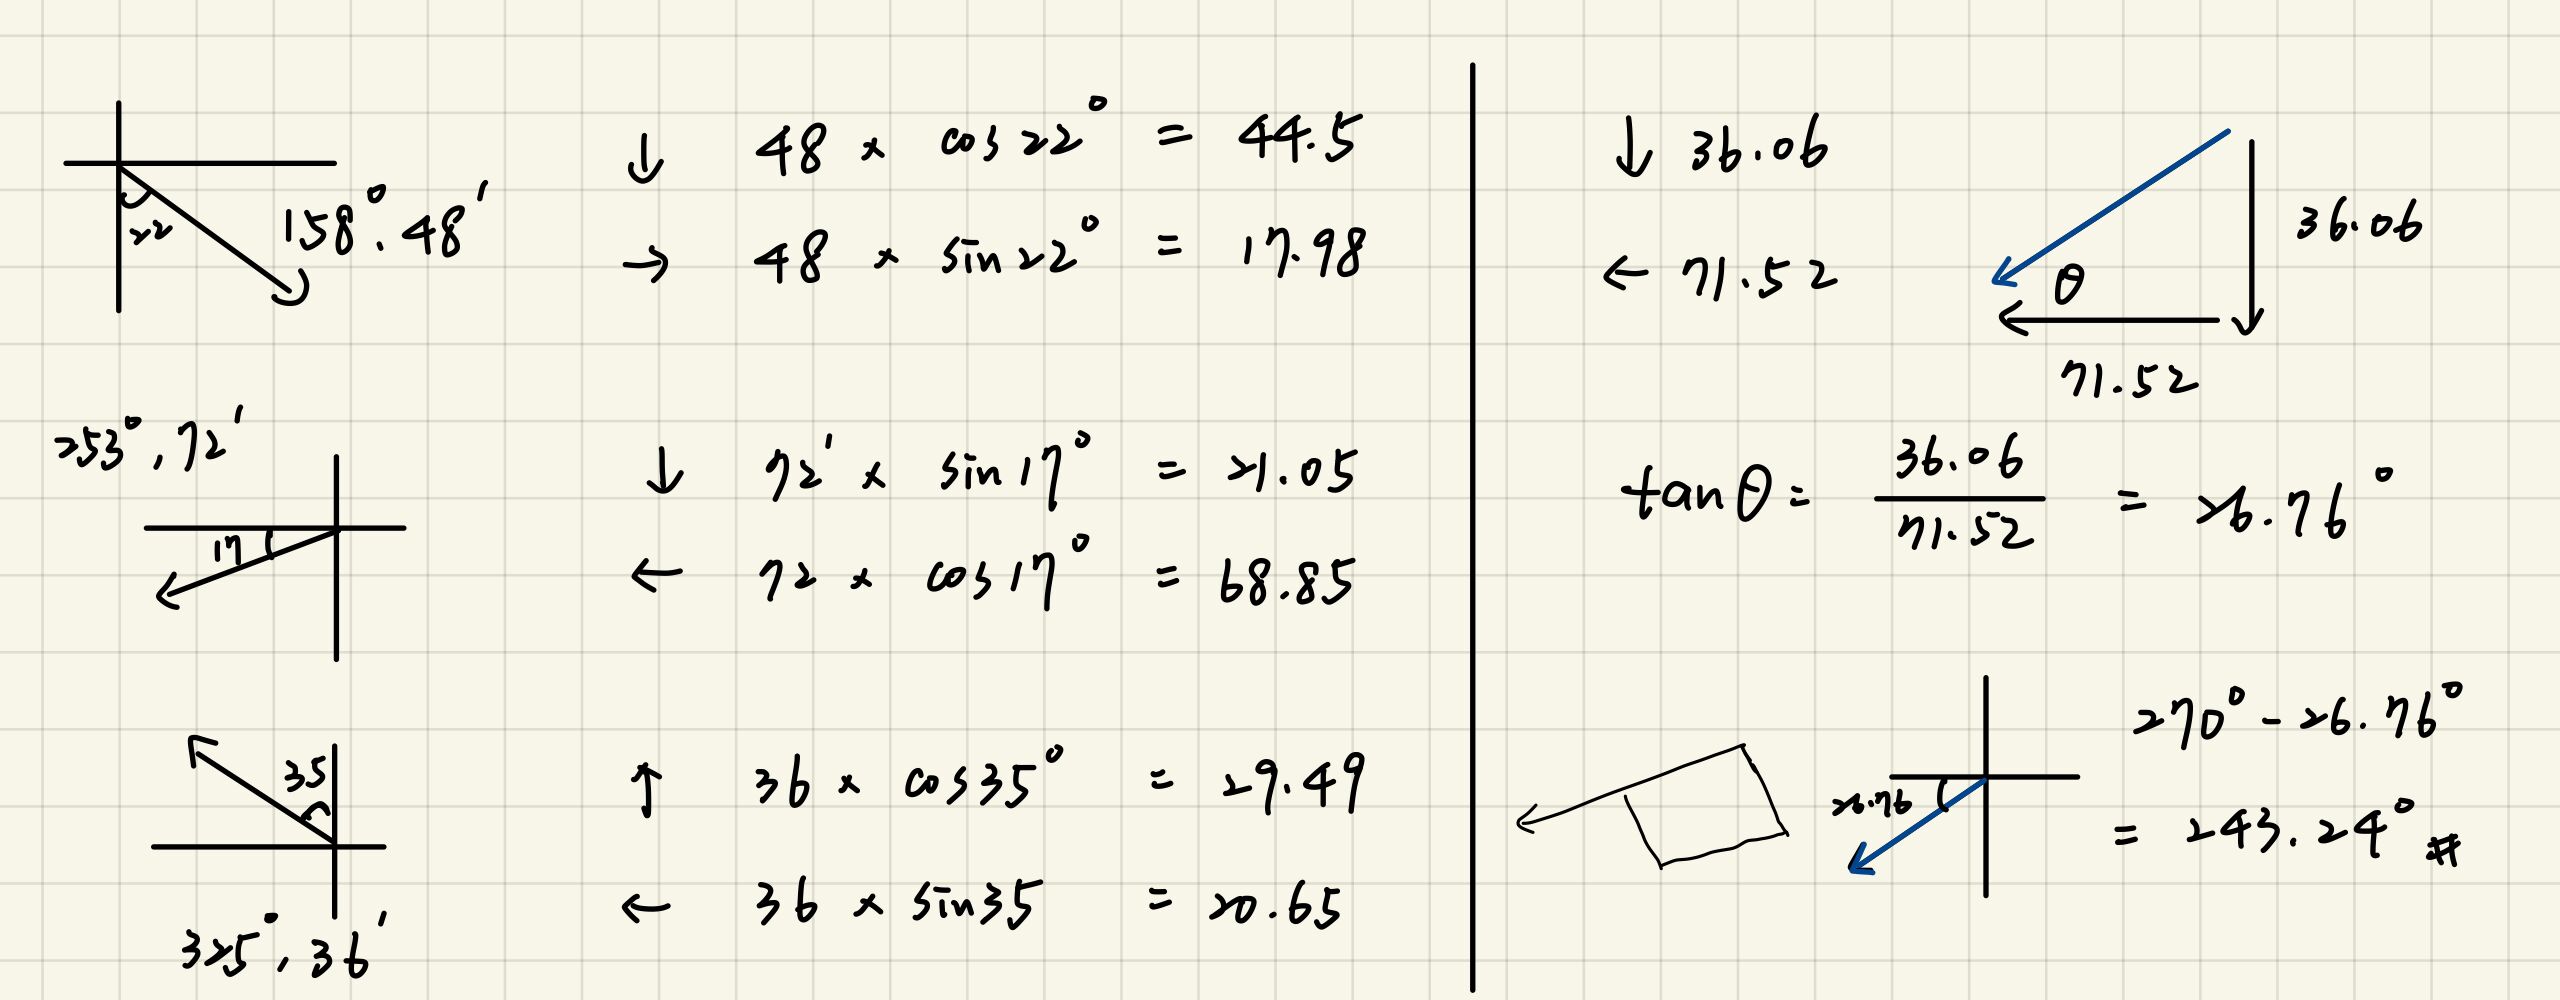 22
158°, 48'
↓ 48 × cos 22° = 44.5
→ 48 × sin 22° = 17.98
253°, 72'
17
↓ 72' × sin 17° = 21.05
← 72 × cos 17° = 68.85
35
325°, 36'
↑ 36 × cos 35° = 29.49
← 36 × sin 35 = 20.65
↓ 36.06
← 71.52
θ
36.06
71.52
tan θ = 36.06 / 71.52 = 26.76°
26.76
270° - 26.76°
= 243.24° #